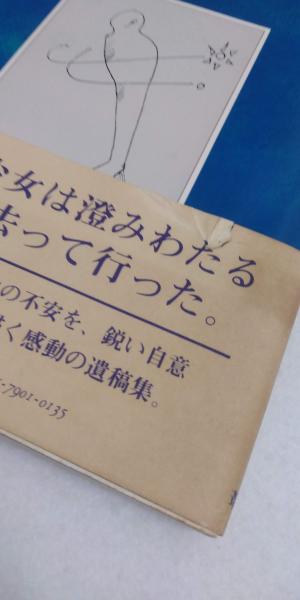 女は澄みわたる
去って行った。
の不安を、鋭い自意
く感動の遺稿集。
-7901-0135